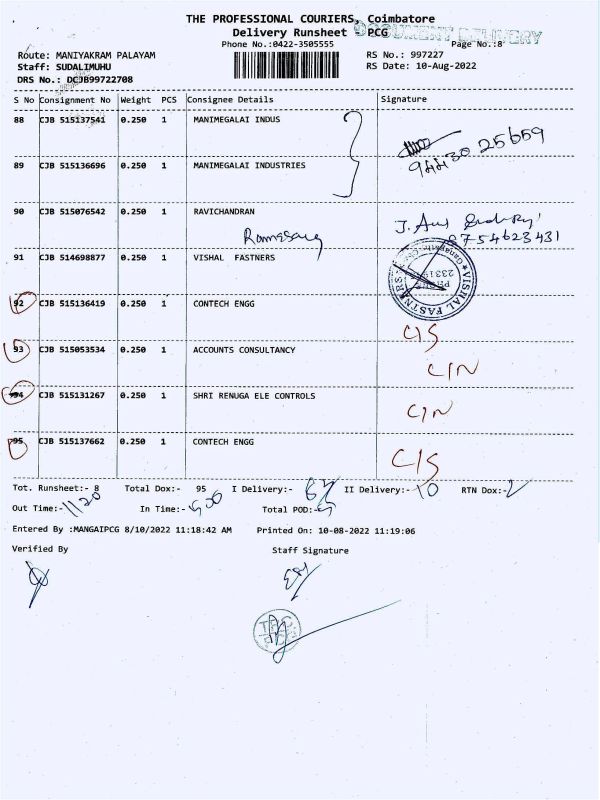 THE PROFESSIONAL COURIERS, Coimbatore
Delivery Runsheet PCG
DOCUMENT DELIVERY
Phone No.:0422-3505555 Page No.:8
Route: MANIYAKRAM PALAYAM RS No.: 997227
Staff: SUDALIMUHU RS Date: 10-Aug-2022
DRS No.: DCJB99722708
S No Consignment No Weight PCS Consignee Details Signature
88 CJB 515137541 0.250 1 MANIMEGALAI INDUS
89 CJB 515136696 0.250 1 MANIMEGALAI INDUSTRIES 94430 25659
90 CJB 515076542 0.250 1 RAVICHANDRAN
8754623431
91 CJB 514698877 0.250 1 VISHAL FASTNERS
VISHAL FASTNARS
92 CJB 515136419 0.250 1 CONTECH ENGG
C/S
93 CJB 515053534 0.250 1 ACCOUNTS CONSULTANCY
C/N
94 CJB 515131267 0.250 1 SHRI RENUGA ELE CONTROLS
C/N
95 CJB 515137662 0.250 1 CONTECH ENGG
C/S
Tot. Runsheet:- 8 Total Dox:- 95 I Delivery:- II Delivery:- 10 RTN Dox:-
Out Time:- 1120 In Time:- 500 Total POD:-
Entered By :MANGAIPCG 8/10/2022 11:18:42 AM Printed On: 10-08-2022 11:19:06
Verified By Staff Signature